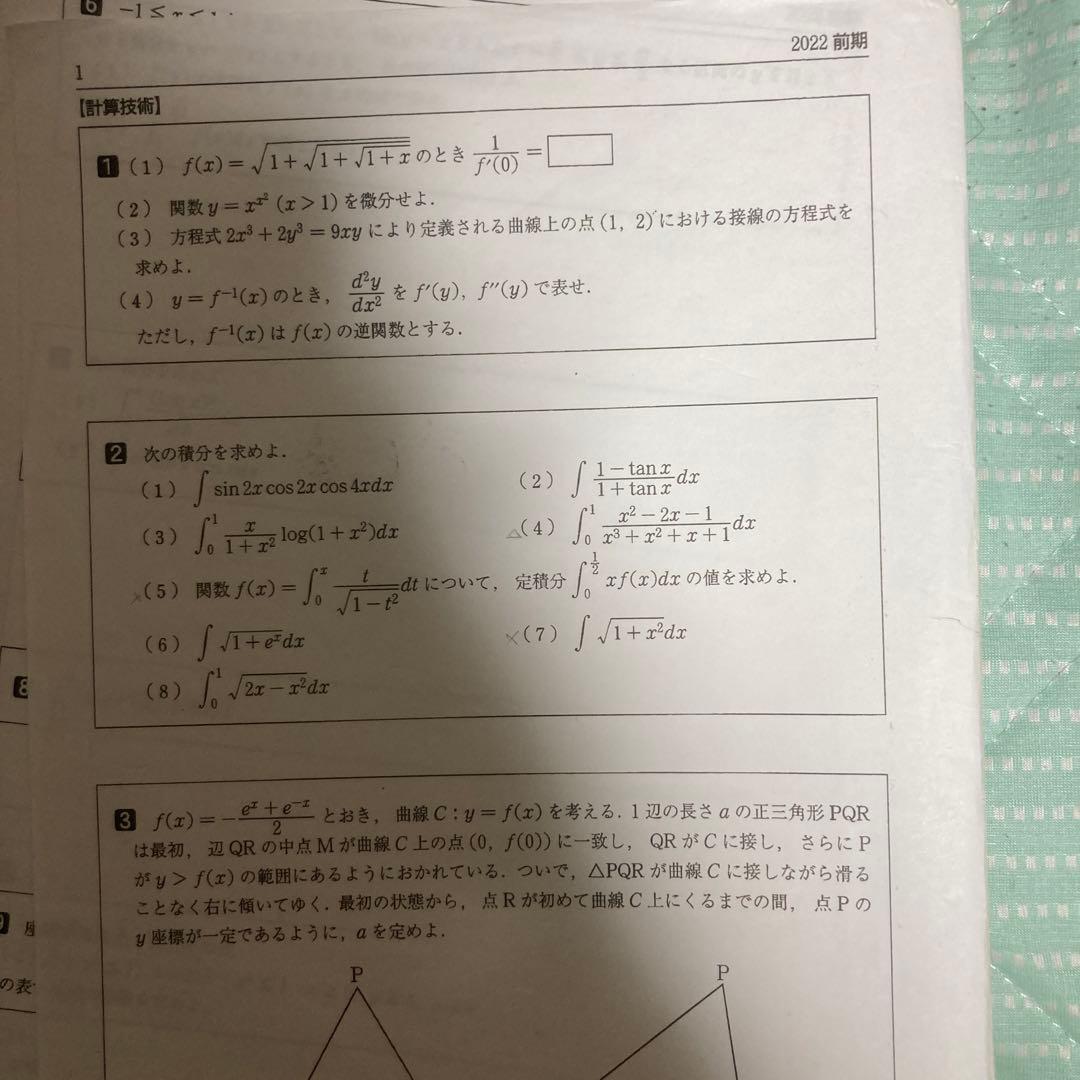 6 -1 ≤
2022 前期
1
【計算技術】
1 (1) f(x) = √(1 + √(1 + √(1 + x))) のとき 1/f′(0) = □
(2) 関数 y = x^{x^2} (x > 1) を微分せよ.
(3) 方程式 2x³ + 2y³ = 9xy により定義される曲線上の点 (1, 2) における接線の方程式を
求めよ.
(4) y = f⁻¹(x) のとき, d²y/dx² を f′(y), f″(y) で表せ.
ただし, f⁻¹(x) は f(x) の逆関数とする.
2 次の積分を求めよ.
(1) ∫ sin 2x cos 2x cos 4x dx (2) ∫ (1 − tan x)/(1 + tan x) dx
(3) ∫₀¹ x/(1 + x²) log(1 + x²)dx △(4) ∫₀¹ (x² − 2x − 1)/(x³ + x² + x + 1) dx
×(5) 関数 f(x) = ∫₀ˣ t/√(1 − t²) dt について, 定積分 ∫₀^{1/2} xf(x)dx の値を求めよ.
(6) ∫ √(1 + eˣ) dx ×(7) ∫ √(1 + x²) dx
(8) ∫₀¹ √(2x − x²) dx
3 f(x) = −(eˣ + e⁻ˣ)/2 とおき, 曲線 C : y = f(x) を考える. 1 辺の長さ a の正三角形 PQR
は最初, 辺 QR の中点 M が曲線 C 上の点 (0, f(0)) に一致し, QR が C に接し, さらに P
が y > f(x) の範囲にあるようにおかれている. ついで, △PQR が曲線 C に接しながら滑る
ことなく右に傾いてゆく. 最初の状態から, 点 R が初めて曲線 C 上にくるまでの間, 点 P の
y 座標が一定であるように, a を定めよ.
P P
8
座
の表